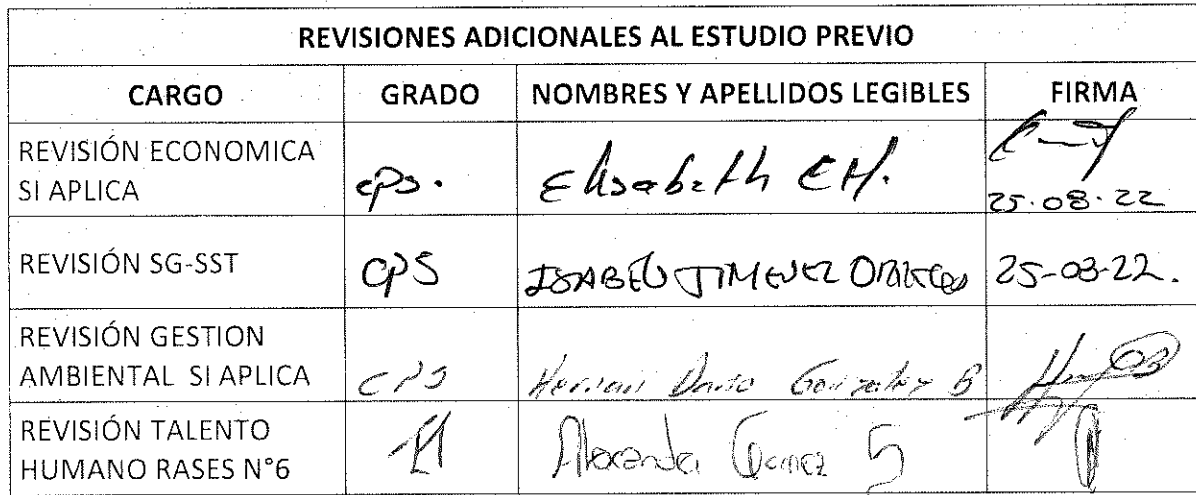 REVISIONES ADICIONALES AL ESTUDIO PREVIO
CARGO GRADO NOMBRES Y APELLIDOS LEGIBLES FIRMA
REVISIÓN ECONOMICA
SI APLICA
cps. Elisabeth CH.
25.08.22
REVISIÓN SG-SST CPS ISABEL JIMENEZ 25-08-22.
REVISIÓN GESTION
AMBIENTAL SI APLICA
CPS Hernan Dario Gonzalez B
REVISIÓN TALENTO
HUMANO RASES N°6